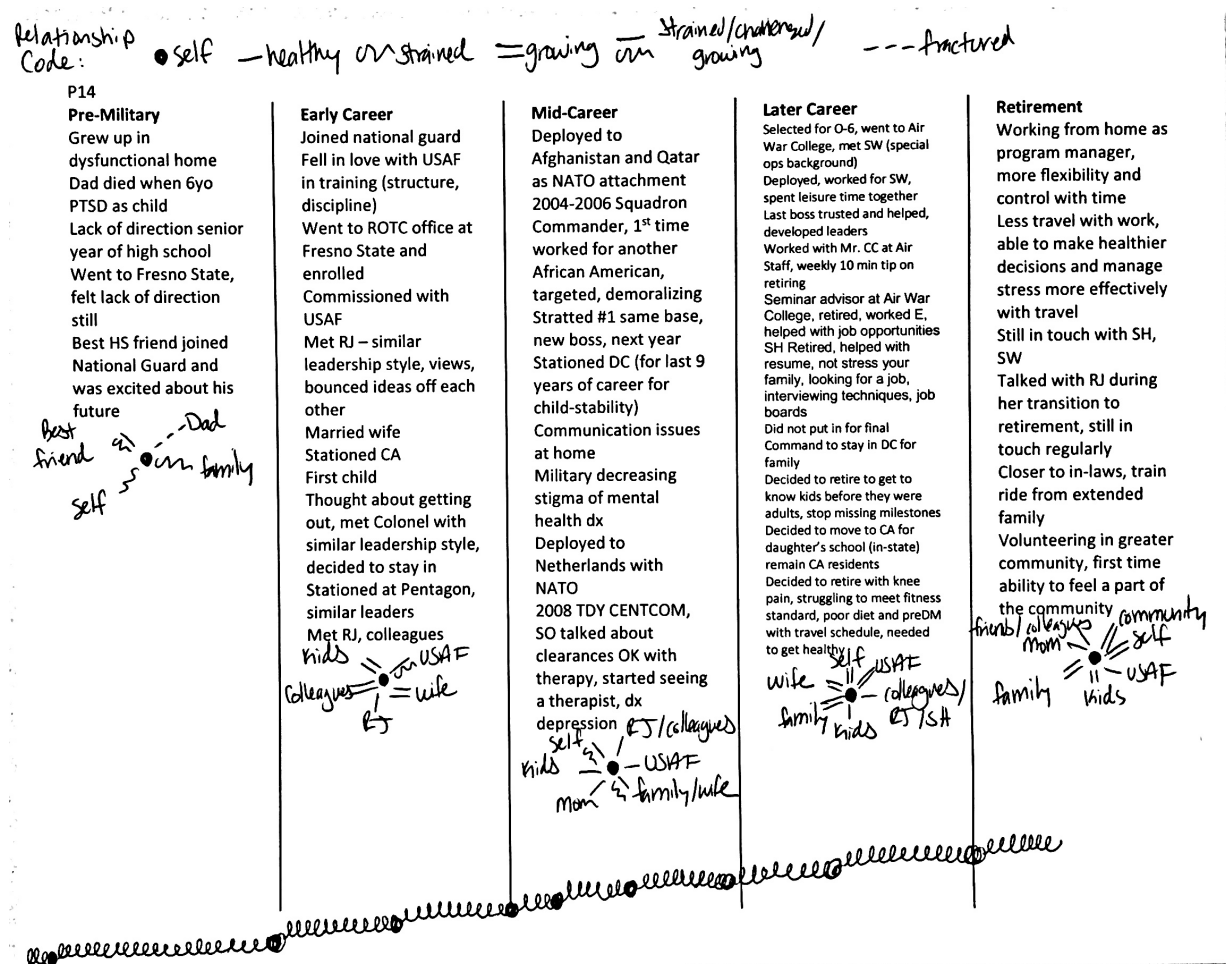 Relationship Code: self healthy strained growing strained/challenged/growing fractured
P14
Pre-Military
Grew up in
dysfunctional home
Dad died when 6yo
PTSD as child
Lack of direction senior
year of high school
Went to Fresno State,
felt lack of direction
still
Best HS friend joined
National Guard and
was excited about his
future
Best friend
Dad
family
Self
Early Career
Joined national guard
Fell in love with USAF
in training (structure,
discipline)
Went to ROTC office at
Fresno State and
enrolled
Commissioned with
USAF
Met RJ – similar
leadership style, views,
bounced ideas off each
other
Married wife
Stationed CA
First child
Thought about getting
out, met Colonel with
similar leadership style,
decided to stay in
Stationed at Pentagon,
similar leaders
Met RJ, colleagues
Kids
USAF
Colleagues
wife
RJ
Mid-Career
Deployed to
Afghanistan and Qatar
as NATO attachment
2004-2006 Squadron
Commander, 1st time
worked for another
African American,
targeted, demoralizing
Stratted #1 same base,
new boss, next year
Stationed DC (for last 9
years of career for
child-stability)
Communication issues
at home
Military decreasing
stigma of mental
health dx
Deployed to
Netherlands with
NATO
2008 TDY CENTCOM,
SO talked about
clearances OK with
therapy, started seeing
a therapist, dx
depression
RJ/colleagues
Self
Kids
USAF
Mom
family/wife
Later Career
Selected for O-6, went to Air
War College, met SW (special
ops background)
Deployed, worked for SW,
spent leisure time together
Last boss trusted and helped,
developed leaders
Worked with Mr. CC at Air
Staff, weekly 10 min tip on
retiring
Seminar advisor at Air War
College, retired, worked E,
helped with job opportunities
SH Retired, helped with
resume, not stress your
family, looking for a job,
interviewing techniques, job
boards
Did not put in for final
Command to stay in DC for
family
Decided to retire to get to
know kids before they were
adults, stop missing milestones
Decided to move to CA for
daughter's school (in-state)
remain CA residents
Decided to retire with knee
pain, struggling to meet fitness
standard, poor diet and preDM
with travel schedule, needed
to get healthy
Self
USAF
wife
colleagues/
RJ/SH
family
Kids
Retirement
Working from home as
program manager,
more flexibility and
control with time
Less travel with work,
able to make healthier
decisions and manage
stress more effectively
with travel
Still in touch with SH,
SW
Talked with RJ during
her transition to
retirement, still in
touch regularly
Closer to in-laws, train
ride from extended
family
Volunteering in greater
community, first time
ability to feel a part of
the community
friends/colleagues
community
Mom
self
USAF
family
Kids